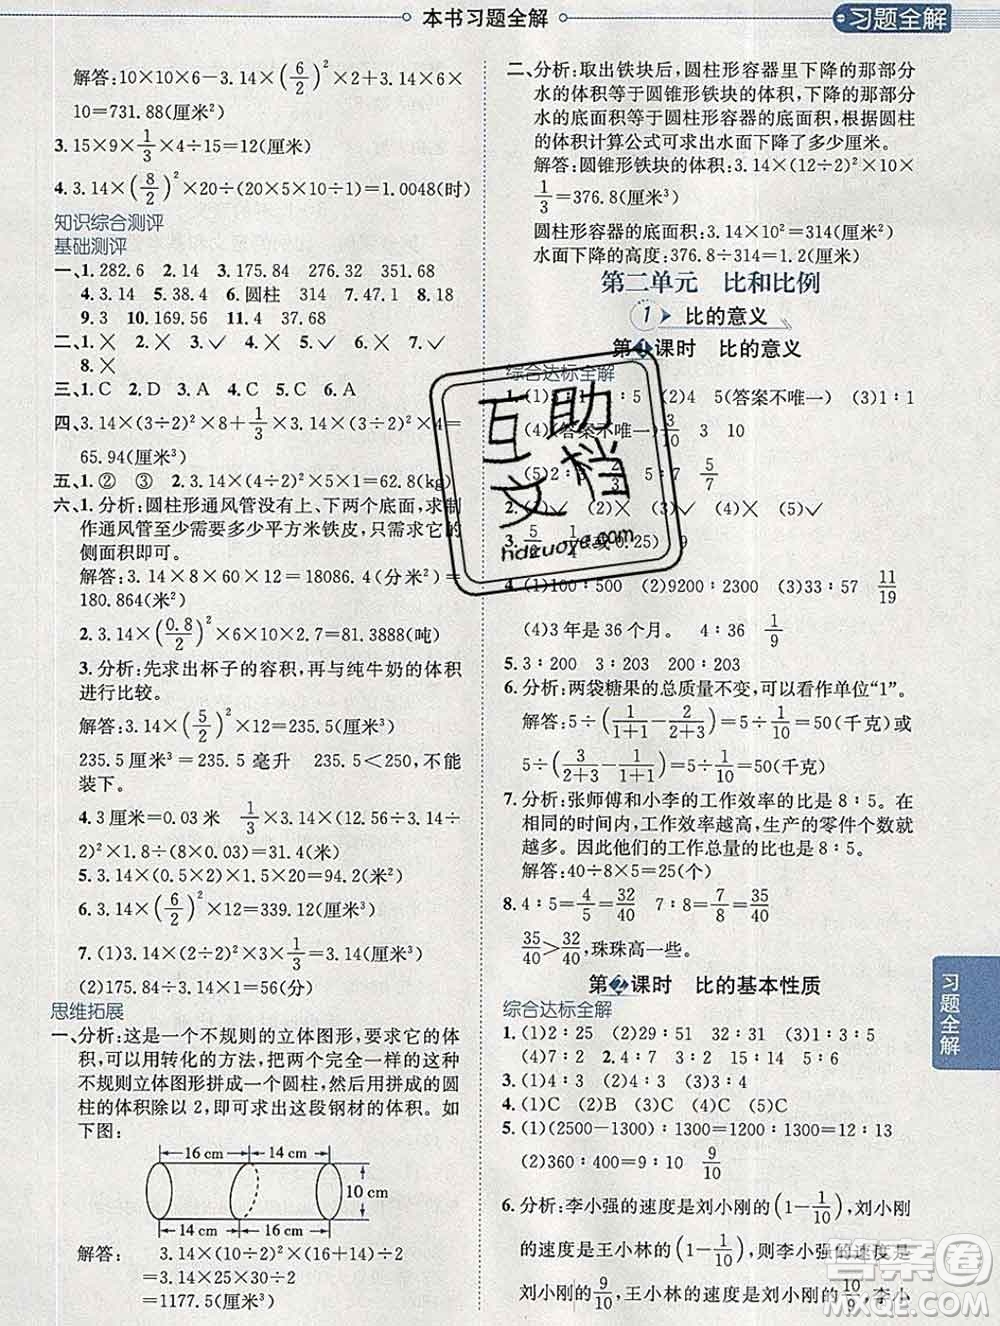 本书习题全解
习题全解
解答:10×10×6-3.14×(6/2)²+3.14×6×
10=731.88(厘米²)
3.15×9×1/3×4÷15=12(厘米)
4.3.14×(8/2)²×20÷(20×5×10)=1.0048(时)
知识综合测评
基础测评
一、1.282.6 2.14 3.175.84 276.32 351.68
4.3.14 5.18.84 6.圆柱 314 7.50.24 8.9
9.3 10.169.56 11.4 37.68
二、1.× 2.× 3.× 4.× 5.√ 6.× 7.√
8.×
三、1.C 2.D 3.A 4.C 5.C 6.A
四、3.14×(3÷2)²×8+1/3×3.14×(3÷2)²×4=
65.94(厘米³)
五、1.② ③ 2.3.14×(4÷2)²×5×1=62.8(kg)
六、1.分析:圆柱形通风管没有上、下两个底面,求制
作通风管至少需要多少平方米铁皮,只需求它的
侧面积即可。
解答:3.14×24×12×20=18086.4(分米²)=
180.864(米²)
2.3.14×(0.8/2)²×6×10×2.7=81.3888(吨)
3.分析:先求出杯子的容积,再与纯牛奶的体积
进行比较。
解答:3.14×(5/2)²×12=235.5(厘米³)
235.5厘米³=235.5毫升 235.5<250,不能
装下。
4.3厘米=0.03米 1/3×3.14×(12.56÷3.14÷
2)²×1.5÷(8×0.03)≈31.4(米)
5.3.14×(0.5×2)×1.5×20=94.2(米²)
6.3.14×(6/2)²×12=339.12(厘米³)
7.(1)3.14×(2÷2)²×3×1/3=3.14(厘米³)
(2)175.84÷3.14=56(分)
思维拓展
一、分析:这是一个不规则的立体图形,要求它的体
积,可以用转化的方法,把两个完全一样的这种
不规则立体图形拼成一个圆柱,然后用拼成的圆
柱的体积除以2,即可求出这段钢材的体积。如
下图:
16 cm 14 cm
10 cm
14 cm 16 cm
解答: 3.14×(10÷2)²×(16+14)÷2
=3.14×25×30÷2
=1177.5(厘米³)
二、分析:取出铁块后,圆柱形容器里下降的那部分
水的体积等于圆锥形铁块的体积,下降的那部分
水的底面积等于圆柱形容器的底面积,根据圆柱
的体积计算公式可求出水面下降了多少厘米。
解答:圆锥形铁块的体积:3.14×(12÷2)²×10×
1/3=376.8(厘米³)
圆柱形容器的底面积:3.14×10²=314(厘米²)
水面下降的高度:376.8÷314=1.2(厘米)
第二单元 比和比例
1 比的意义
第1课时 比的意义
综合达标全解
5 (2)4 5(答案不唯一) (3)1∶1
(4) (答案不唯一) 3/10 3 10
(5)2∶ 5∶7 5/7
2.(1)√ (2)× (3)× (4)× (5)√
3.5/2 1/4(或0.25) 9
4.(1)100∶500 (2)9200∶2300 (3)33∶57 11/19
(4)3年是36个月。 4∶36 1/9
5.3∶203=3∶200=200∶203
6.分析:两袋糖果的总质量不变,可以看作单位“1”。
解答:5÷(1/(1+1)-2/(2+3))=5÷1/10=50(千克)或
5÷(3/(2+3)-1/(1+1))=5÷1/10=50(千克)
7.分析:张师傅和小李的工作效率的比是8∶5。在
相同的时间内,工作效率越高,生产的零件个数就
越多。因此他们的工作总量的比也是8∶5。
解答:40÷8×5=25(个)
8.4∶5=4/5=32/40 7∶8=7/8=35/40
35/40>32/40,珠珠高一些。
第2课时 比的基本性质
综合达标全解
1.(1)2∶25 (2)29∶51 32∶31 (3)1∶3∶5
(4)7∶2 2.4∶7 11∶4 14∶15 5∶6
3.(1)4 (2)2 (3)4 (4)9
4.(1)C (2)B (3)C (4)B (5)C
5.(1)(2500-1300)∶1300=1200∶1300=12∶13
(2)360∶400=9∶10 9/10
6.分析:李小强的速度是刘小刚的(1-1/10),刘小刚
的速度是王小林的(1-1/10),则李小强的速度是
刘小刚的9/10,王小林的速度是刘小刚的10/9,李小
习题全解
互助
文档
hdzuoye.com
答案圈